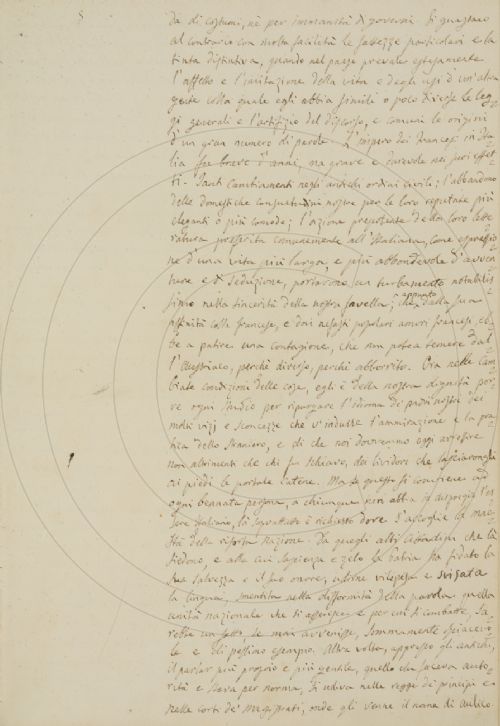 da di costumi, nè per immanità di governi. Si guastano
al contrario con molta facilità le fattezze particolari e la
tinta distintiva, quando nel paese prevale estesamente
l'affetto e l'imitazione della vita e degli usi d'un'altra
gente colla quale egli abbia simili o poco diverse le leg-
gi generali e l'artifizio del discorso, e comuni le origini
d'un gran numero di parole. L'impero dei Francesi in Ita-
lia fu breve d'anni, ma grave e durevole nei suoi effet-
ti. Tanti cambiamenti negli antichi ordini civili; l'abbandono
delle domestiche consuetudini nostre per le loro reputate più
eleganti o più comode; l'azione prepotente della loro lette-
ratura preferita comunemente all'Italiana, come espressio-
ne d'una vita più larga, e più abbondevole d'avven-
ture e di seduzione, portarono un turbamento notabilis-
simo nella sincerità della nostra favella; che appunto dalla sua
affinità colla francese, e dai nefasti popolari amori francesi, eb-
be a patire una contagione, che non potea temere dal-
l'Austriaco, perchè diverso, perchè abborrito. Ora nelle cam-
biate condizioni delle cose, egli è della nostra dignità por-
re ogni studio per ripurgare l'idioma de' padri nostri dei
molti vizj e sconcezze che v'indusse l'ammirazione e la pra-
tica dello straniero, e di che noi dovremmo oggi arrossire
non altrimenti che chi fu schiavo, dei lividori che lasciarongli
ai piedi le portate catene. Ma se questo si conviene ad
ogni bennata persona, a chiunque non abbia in dispregio l'es-
sere Italiano, là soprattutto è richiesto dove s'accoglie la mae-
stà della risorta Nazione. Da quegli alti Consiglj che là
siedono, e alla cui sapienza e zelo la Patria ha fidato la
sua salvezza e il suo onore, uscirne vilipesa e svisata
la lingua, smentita nella difformità della parola quella
unità nazionale che si asserisce e per cui si combatte, sa-
rebbe un fatto, se mai avvenisse, sommamente spiacevo-
le e di pessimo esempio. Altra volta, appresso gli antichi,
il parlar più proprio e più gentile, quello che faceva auto-
rità e stava per norma, si udiva nelle reggie dei principi e
nelle corti de' Magistrati, onde gli venne il nome di aulico